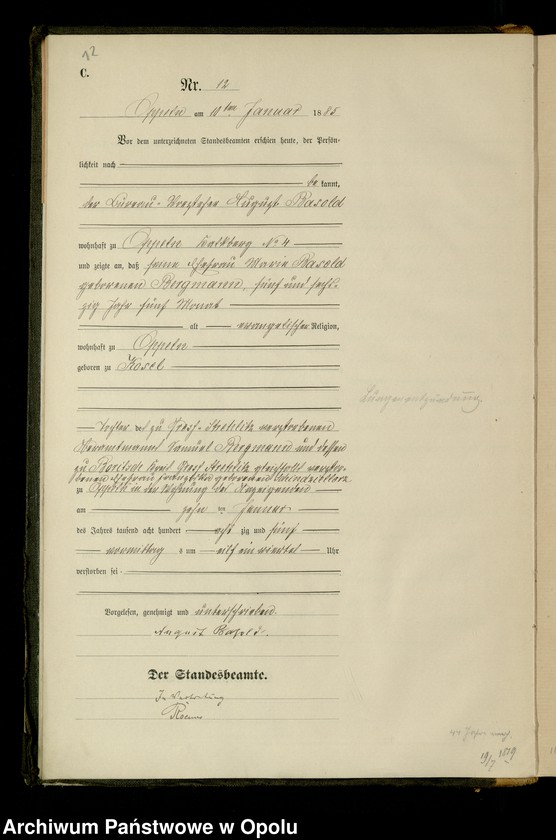 12
C.
Nr. 12
Oppeln am 10ten Januar 1885
Vor dem unterzeichneten Standesbeamten erschien heute, der Persön-
lichkeit nach
be kannt,
der Bureau-Vorsteher August Basold
wohnhaft zu Oppeln No 4
und zeigte an, daß seine Ehefrau Marie Basold
geborenen Bergmann, fünf und sech-
zig Jahr fünf Monat
alt evangelischer Religion,
wohnhaft zu Oppeln
geboren zu Kosel
Tochter des zu Gross-Strehlitz verstorbenen
Oberamtmann Samuel Bergmann und dessen
zu Kreis Gross Strehlitz gleichfalls verstor-
benen Ehefrau geborenen
zu Oppeln in der Wohnung des Anzeigenden
am zehn ten Januar
des Jahres tausend acht hundert acht zig und fünf
vormittag s um eilf ein viertel Uhr
verstorben sei
Vorgelesen, genehmigt und unterschrieben
August Basold.
Der Standesbeamte.
In Vertretung
Lungenentzündung
19/7 1819
Archiwum Państwowe w Opolu